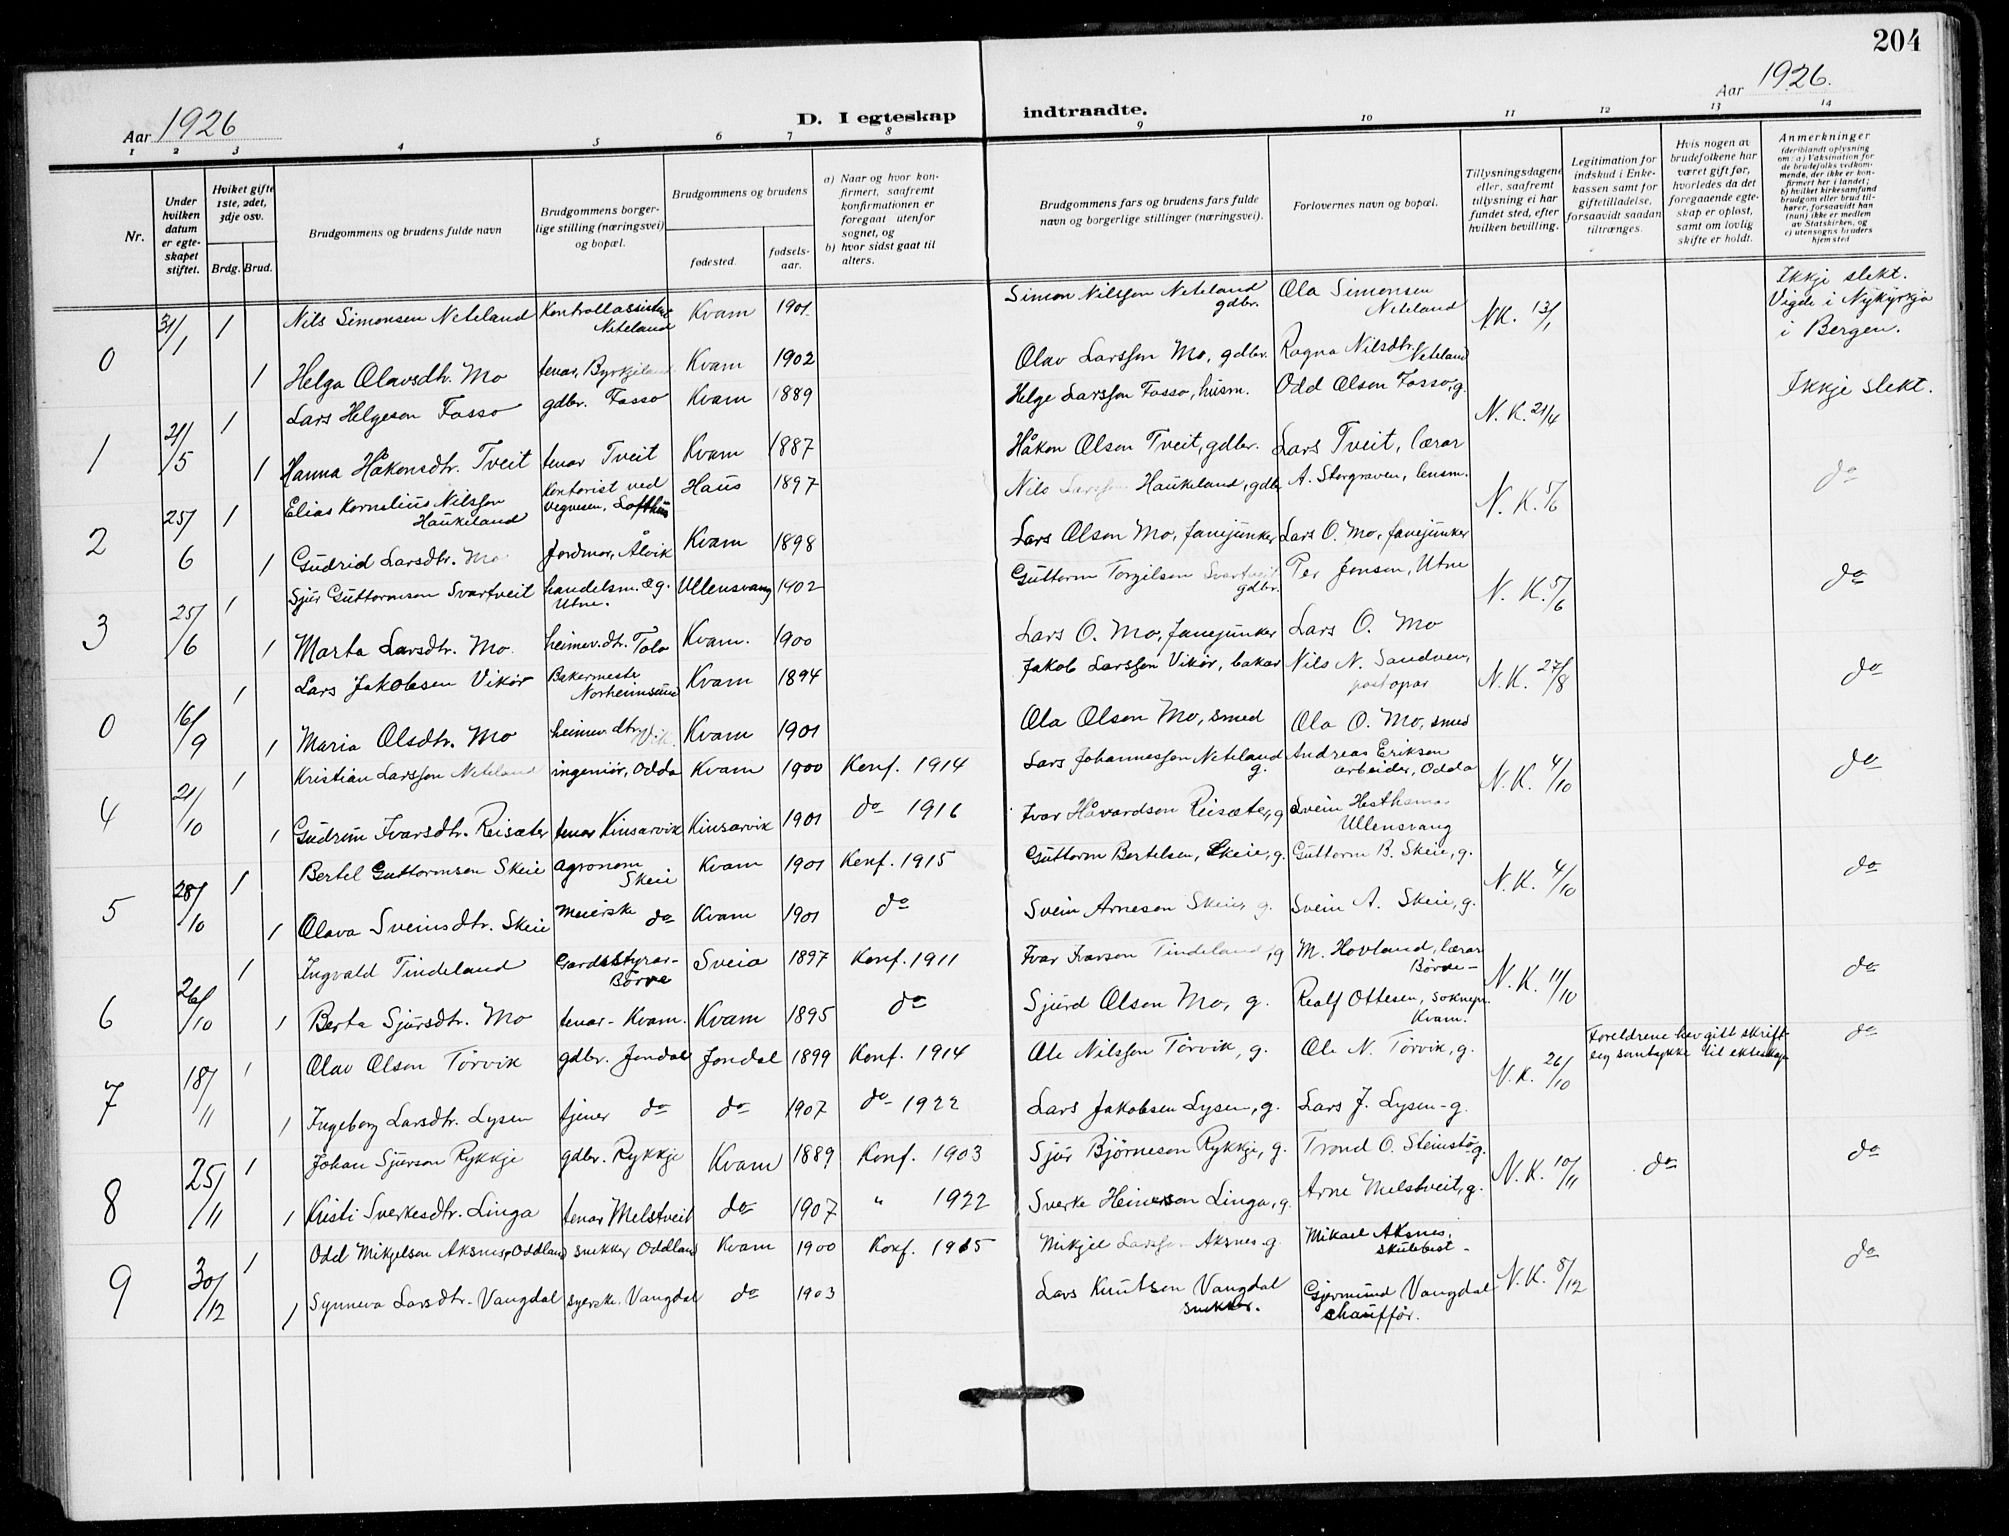 204
Aar 1926
D. I egteskap indtraadte.
Aar 1926.
1 2 3 4 5 6 7 8 9 10 11 12 13 14
Nr.
Under hvilken datum er egteskapet stiftet.
Hvilket gifte 1ste, 2det, 3dje osv.
Brdg. Brud.
Brudgommens og brudens fulde navn
Brudgommens borgerlige stilling (næringsvei) og bopæl.
Brudgommens og brudens
fødested.
fødselsaar.
a) Naar og hvor konfirmert, saafremt konfirmationen er foregaat utenfor sognet, og
b) hvor sidst gaat til alters.
Brudgommens fars og brudens fars fulde navn og borgerlige stillinger (næringsvei).
Forlovernes navn og bopæl.
Tillysningsdagene eller, saafremt tillysning ei har fundet sted, efter hvilken bevilling.
Legitimation for indskud i Enkekassen samt for giftetilladelse, forsaavidt saadan tiltrænges.
Hvis nogen av brudefolkene har været gift før, hvorledes da det foregaaende egteskap er opløst, samt om lovlig skifte er holdt.
Anmerkninger (deriblandt oplysning om: a) Vaksination for de brudefolks vedkommende, der ikke er konfirmert her i landet; b) hvilket kirkesamfund brudgom eller brud tilhører, forsaavidt han (hun) ikke er medlem av Statskirken, og c) utensogns bruders hjemsted
0 31/1 1 Nils Simonsen Neteland Kontrollassistent Neteland Kvam 1901 Simon Nilsson Neteland gdbr. Ola Simonsen Neteland N.K. 13/1 Ikkje slekt. Vigde i Nykyrkja i Bergen.
1 Helga Olavsdtr. Mo tenar, Byrkjeland Kvam 1902 Olav Larsson Mo, gdbr. Ragna Nilsdtr. Neteland
1 21/5 1 Lars Helgeson Fosso gdbr. Fosso Kvam 1889 Helge Larsson Fosso, husm. Odd Olson Fosso, g. N.K. 21/4 Ikkje slekt.
1 Hanna Håkonsdtr. Tveit tenar Tveit Kvam 1887 Håkon Olson Tveit, gdbr. Lars Tveit, lærar
2 25/6 1 Elias Kornelius Nilsson Haukeland Kontorist ved vegvesen, Lofthus Haus 1897 Nils Larsson Haukeland, gdbr A. Storgraven, lensm. N.K. 5/6 do
1 Gudrid Larsdtr. Mo Jordmor, Ålvik Kvam 1898 Lars Olson Mo, fanejunker Lars O. Mo, fanejunker
3 25/6 1 Sjur Guttormson Svartveit handelsm. Utne. Ullensvang 1902 Guttorm Torgilson Svartveit gdbr. Per Jonson, Utne N.K. 5/6 do
1 Marta Larsdtr. Mo heimev. dtr. Tolo Kvam. 1900 Lars O. Mo, fanejunker Lars O. Mo
0 16/9 1 Lars Jakobsen Vikør Bakermeste Norheimsund Kvam 1894 Jakob Larsson Vikør, bakar Nils N. Sandven, postopnar N.K. 27/8 do
1 Maria Olsdtr. Mo heimev. dtr. Vik. Kvam 1901 Ola Olson Mo, smed Ola O. Mo, smed
4 21/10 1 Kristian Larsson Neteland ingeniør, Odda Kvam 1900 Konf. 1914 Lars Johannesson Neteland g. Andreas Erikson arbeider, Odda N.K. 4/10 do
1 Gudrun Ivarsdtr. Reisæter tenar Kinsarvik Kinsarvik 1901 do 1916 Ivar Håvardson Reisæter, g Svein Ullensvang
5 28/10 1 Bertel Guttormsen Skeie agronom Skeie Kvam 1901 Konf. 1915 Guttorm Bertelsen, Skeie, g. Guttorm B. Skeie, g. N.K. 4/10 do
1 Olava Sveinsdtr. Skeie Meierske do Kvam 1901 do Svein Arneson Skeie, g. Svein A. Skeie, g.
6 26/10 1 Ingvald Tindeland Gardsstyrar- Børve Sveio 1897 Konf. 1911 Ivar Ivarson Tindeland, g M. Hovland, lærar Børve- N.K. 11/10 do
1 Berta Sjursdtr. Mo tenar- Kvam. Kvam 1895 do Sjurd Olson Mo, g. Realf Ottesen, soknepr. Kvam.
7 18/11 1 Olav Olson Tørvik gdbr. Jondal Jondal 1899 Konf. 1914 Ole Nilsson Tørvik, g. Ole N. Tørvik, g. N.K. 26/10 Foreldrene hev gitt skriftleg samtykke til ekteskap do
1 Ingeborg Larsdtr. Lysen tjener do do 1907 do- 1922 Lars Jakobsen Lysen, g. Lars J. Lysen-g.
8 25/11 1 Johan Sjurson Rykkje gdbr. Rykkje Kvam 1889 Konf. 1903 Sjur Bjørneson Rykkje, g. Trond O. Steinstø g. N.K. 10/11 do do
1 Kristi Sverkesdtr. Linga tenar Melstveit do 1907 " 1922 Sverke Heinerson Linga, g. Arne Melstveit, g.
9 30/12 1 Odd Mikjelson Aksnes, Oddland snekker Oddland Kvam 1900 Konf. 1915 Mikjel Larsson Aksnes-g. Mikael Aksnes, skulebest- N.K. 8/12 do
1 Synneva Larsdtr. Vangdal syerske. Vangdal do 1903 Lars Knutson Vangdal snekkar. Gjermund Vangdal chaufför.